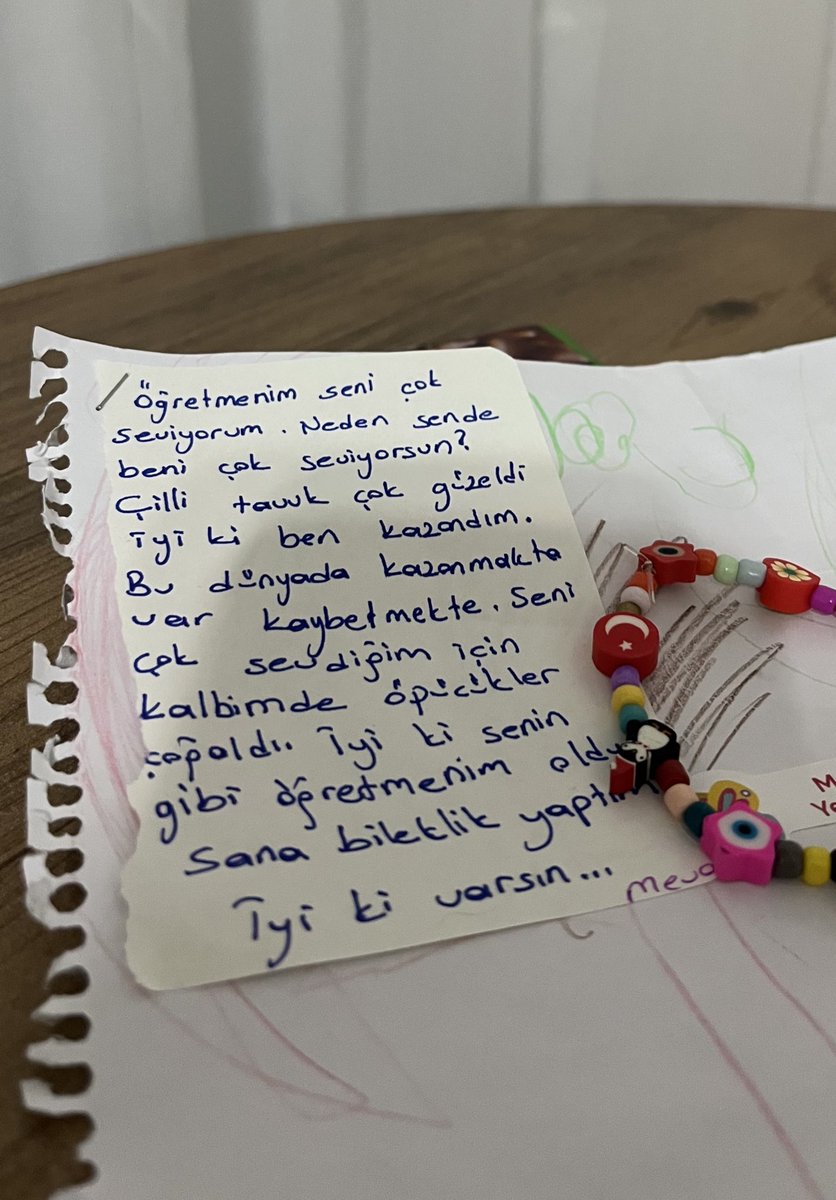 "Öğretmenim seni çok
seviyorum. Neden sende
beni çok seviyorsun?
Çilli tavuk çok güzeldi
iyi ki ben kazandım.
Bu dünyada kazanmakta
var kaybetmekte. Seni
çok sevdiğim için
kalbimde öpücükler
çoğaldı. İyi ki senin
gibi öğretmenim oldu
Sana bileklik yaptım
İyi ki varsın...